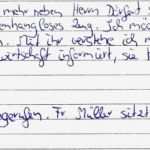 mehr neben Herrn Dürfert
enhangloses Zeug. Ich möc
. Mit ihr verstehe ich m
wirtschaft informiert, sie h
gerufen. Fr Müller sitzt